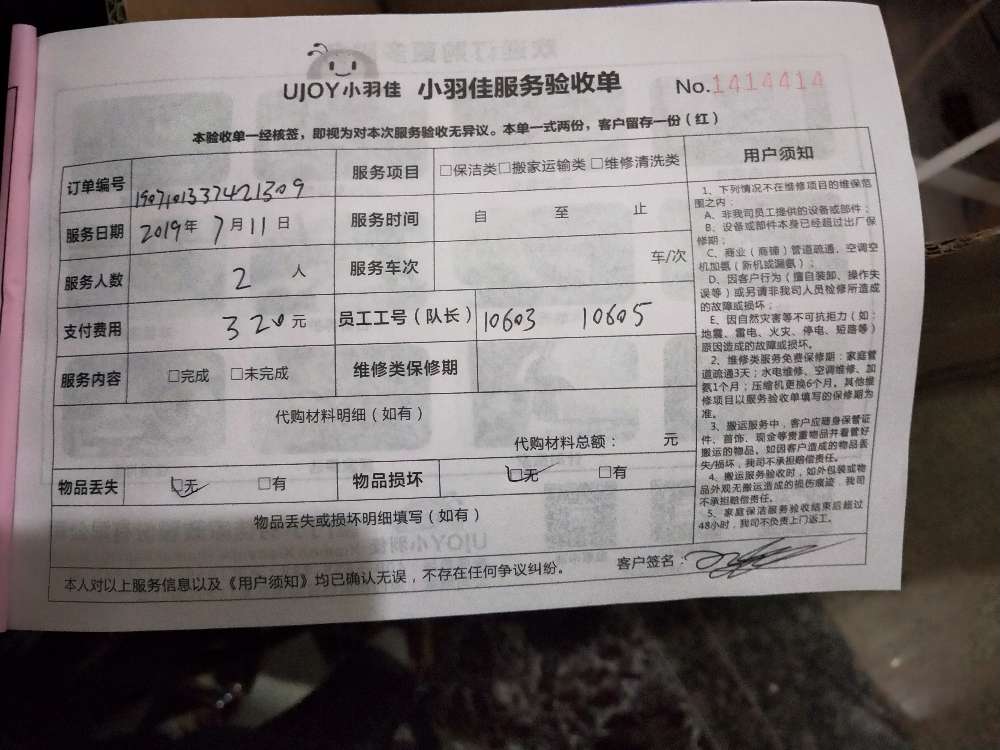 UJOY小羽佳 小羽佳服务验收单 No.1414414
本验收单一经核签，即视为对本次服务验收无异议。本单一式两份，客户留存一份（红）
订单编号 1907101337421309 服务项目 □保洁类□搬家运输类□维修清洗类
服务日期 2019年7月11日 服务时间 自 至 止
服务人数 2 人 服务车次 车/次
支付费用 320元 员工工号（队长） 10603 10605
服务内容 □完成 □未完成 维修类保修期
代购材料明细（如有）
代购材料总额： 元
物品丢失 □无 □有 物品损坏 □无 □有
物品丢失或损坏明细填写（如有）
本人对以上服务信息以及《用户须知》均已确认无误，不存在任何争议纠纷。 客户签名：
用户须知
1、下列情况不在维修项目的维保范
围之内：
A、非我司员工提供的设备或部件；
B、设备或部件本身已经超过出厂保
修期；
C、商业（商铺）管道疏通，空调空
机加氨（新机或漏氨）；
D、因客户行为（擅自装卸、操作失
误等）或另请非我司人员检修所造成
的故障或损坏；
E、因自然灾害等不可抗拒力（如：
地震、雷电、火灾、停电、短路等）
原因造成的故障或损坏。
2、维修类服务免费保修期：家庭管
道疏通3天；水电维修、空调维修、加
氨1个月；压缩机更换6个月。其他维
修项目以服务验收单填写的保修期为
准。
3、搬运服务中，客户应随身保管证
件、首饰、现金等贵重物品并看管好
搬运的物品，如因客户造成的物品丢
失/损坏，我司不承担赔偿责任。
4、搬运服务验收时，如外包装或物
品外观无搬运造成的损伤痕迹，我司
不承担赔偿责任。
5、家庭保洁服务验收结束后超过
48小时，我司不负责上门返工。